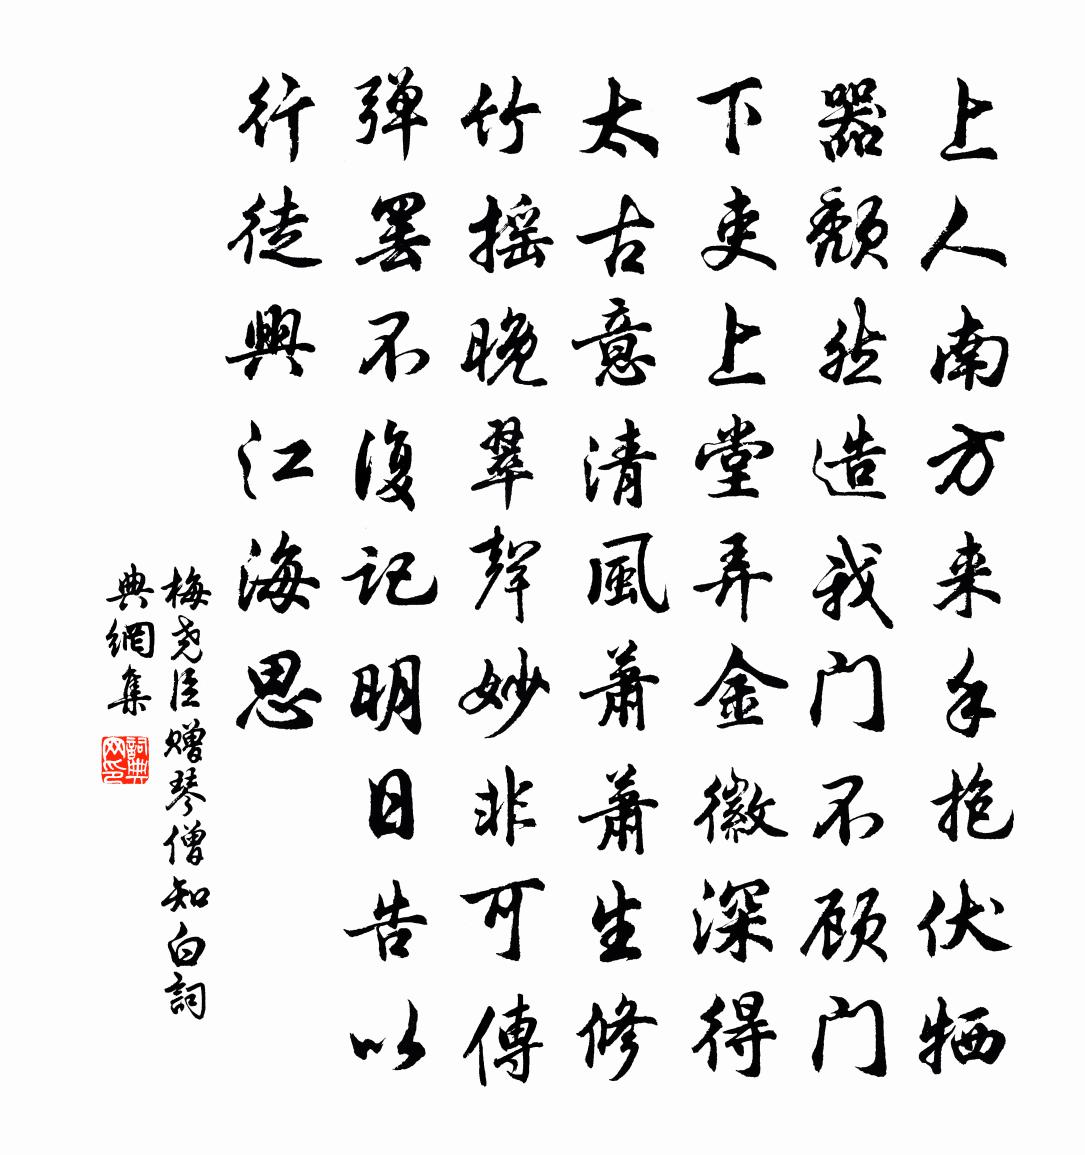 上人南方来手抱伏牺
器颓然造我门不顾门
下吏上堂弄金徽深得
太古意清風萧萧生修
竹摇晚翠聲妙非可傳
弹罢不復记明日告以
行徒興江海思
梅尧臣赠琴僧知白詞
典網集
詞典
网印